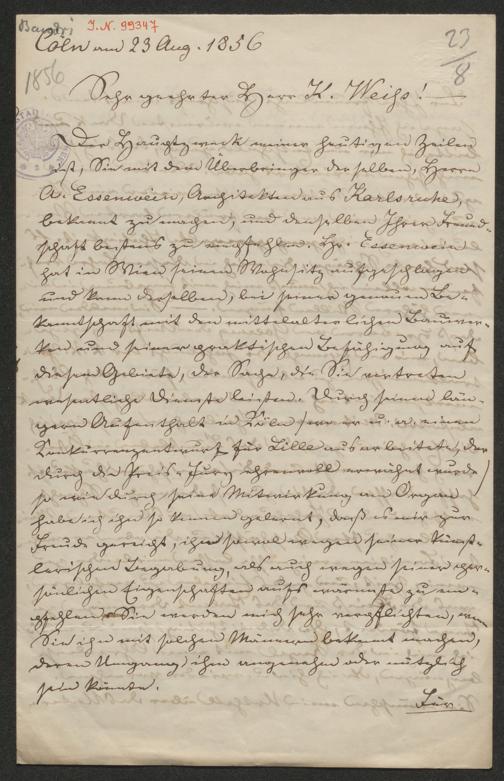 Bandri
I. N. 99347
Cöln am 23 Aug. 1856
23/8
1856
Sehr geehrter Herr K. Weiss!
Der Hauptzweck meiner heutigen Zeilen
ist, Sie mit dem Überbringer derselben, Herrn
A. Essenwein, Architekten aus Karlsruhe,
bekannt zu machen, und denselben Ihrer Freund-
schaft bestens zu empfehlen. Hr. Essenwein
hat in Wien seinen Wohnsitz aufgeschlagen
und kann derselbe, bei seiner genauen Be-
kanntschaft mit den mittelalterlichen Bauwer-
ken und seiner praktischen Befähigung auf
diesem Gebiete, der Sache, die Sie vertreten
wesentliche Dienste leisten. Durch seinen län-
gern Aufenthalt in Köln (wo er u. a. einen
Konkurrenzentwurf für Lille ausarbeitete, der
durch die Preis-Jury ehrenvoll erwähnt wurde)
so wie durch seine Mitwirkung am Organ
habe ich ihn so kennen gelernt, daß es mir zur
Freude gereicht, ihn sowol wegen seiner künst-
lerischen Begabung, als auch wegen seiner per-
sönlichen Eigenschaften aufs wärmste zu em-
pfehlen. Sie werden mich sehr verpflichten, wenn
Sie ihn mit solchen Männern bekannt machen,
deren Umgang ihm angenehm oder nützlich
sein könnte.
Für